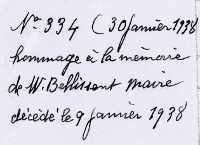 No 334 (30 Janvier 1938
hommage à la mémoire
de Mr Bellissent maire
décédé le 9 janvier 1938